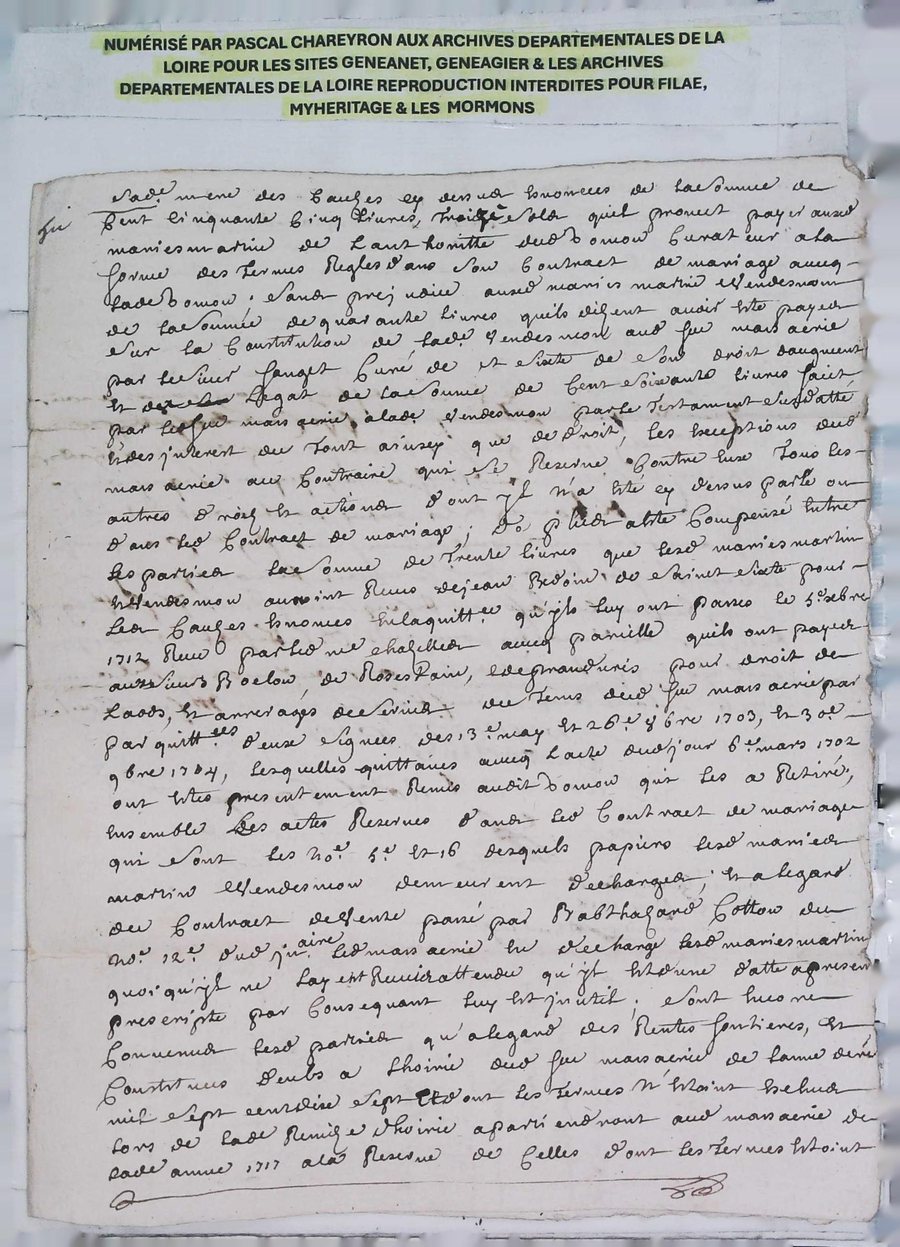 NUMÉRISÉ PAR PASCAL CHAREYRON AUX ARCHIVES DEPARTEMENTALES DE LA
LOIRE POUR LES SITES GENEANET, GENEAGIER & LES ARCHIVES
DEPARTEMENTALES DE LA LOIRE REPRODUCTION INTERDITES POUR FILAE,
MYHERITAGE & LES MORMONS
sade mere des causes cy dessus enoncees de la somme de
Cent cinquante cinq livres, treize sols quil promet payer ausd
maries martin de lauthoritte dud Domon curateur a la
forme des termes regles dans son contract de mariage avecq
lade Domon, sans prejudice ausd maries martin Vendesmon
de la somme de quarante livres quils disent avoir esté payes
sur la Constitution de lade Vendesmon aud feu marsaerie
par le sieur fauget Curé de st sixte de son droit daugment
et legat de la somme de Cent soixante livres faict
par led feu marsaerie a lade Vendesmon par le testament susdatté
et des jnterest du tout ainsy que de droit, les exceptions dud
marsaerie au contraire qui se reserve contre eux tous les
autres droits et actions dont yl n'a esté cy dessus parlé ou
dans led Contract de mariage; Compensé entre
les parties la somme de trente livres que lesd maries martin
et Vendesmon auroint receus de jean de sainct sixte pour
les causes enonces en la quittce qu'yls luy ont passé le 5e xbre
1712 receue par led me avecq pareille quils ont payes
aux sieurs pour droit de
Laods, et arrerages de servis du tems dud feu marsaerie par
par quittces deux signees des 13e may et 26e 8bre 1703, et 30e
9bre 1704, lesquelles quittances avecq lacte dud jour 6e mars 1702
ont estes presentement remis audit Domon qui les a retiré,
ensemble les actes reserves dans led Contract de mariage
qui sont les No. 5e et 16 desquels papiers lesd maries
martin Vendesmon demeurent decharges; et a legard
du Contract de vente passé par Balthazard Cotton du
No. 12e dud jnre aire led marsaerie en decharge lesd maries martin
quoi qu'yl ne lay est attendu qu'yl est dune datte apresent
prescripte par consequant luy est jnutil; sont encore
convenus lesd parties qu'a legard des Rentes fontieres, et
Constitues deubs a lhoirie dud feu marsaerie de lanne dere
mil sept cent dise sept dont les termes n'estoint escheus
lors de lade Remise dhoirie apartiendront aud marsaerie de
lade annee 1717 a la Reserve de Celles dont les termes estoint